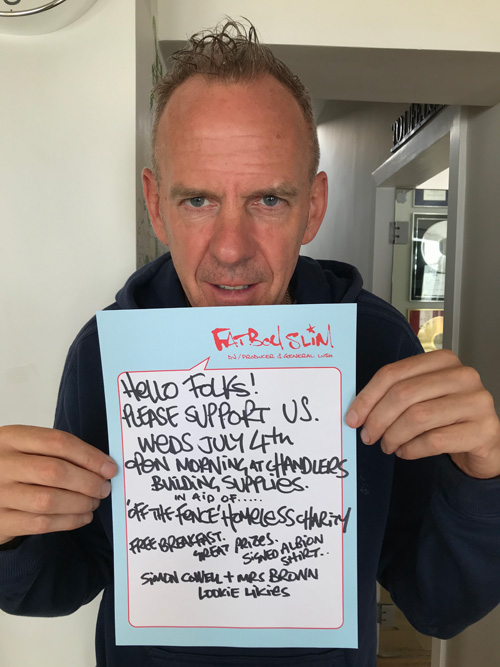 FATBOY SLIM
DJ/PRODUCER & GENERAL LUSH
HELLO FOLKS!
PLEASE SUPPORT US.
WEDS JULY 4th
OPEN MORNING AT CHANDLERS
BUILDING SUPPLIES.
IN AID OF.....
'OFF THE FENCE' HOMELESS CHARITY
FREE BREAKFAST.
GREAT PRIZES.
SIGNED ALBION
SHIRT..
SIMON COWELL + MRS BROWN
LOOKIE LIKIES